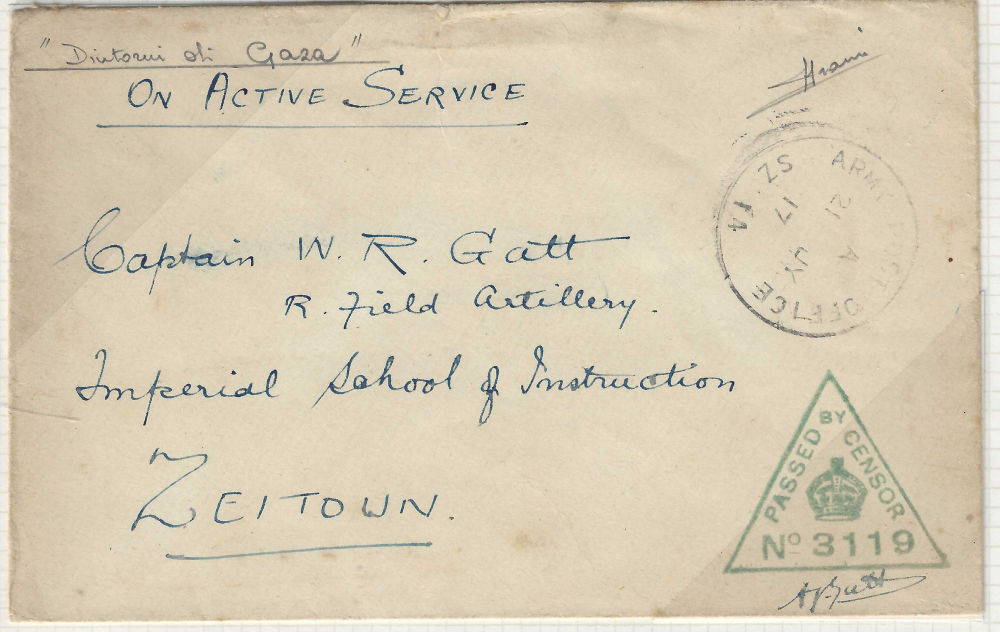 "Dintorni di Gaza"
ON ACTIVE SERVICE
ARMY POST OFFICE
SZ 14
21 A
17 JY
Captain W. R. Gatt
R. Field Artillery.
Imperial School of Instruction
ZEITOWN.
PASSED BY CENSOR
No 3119